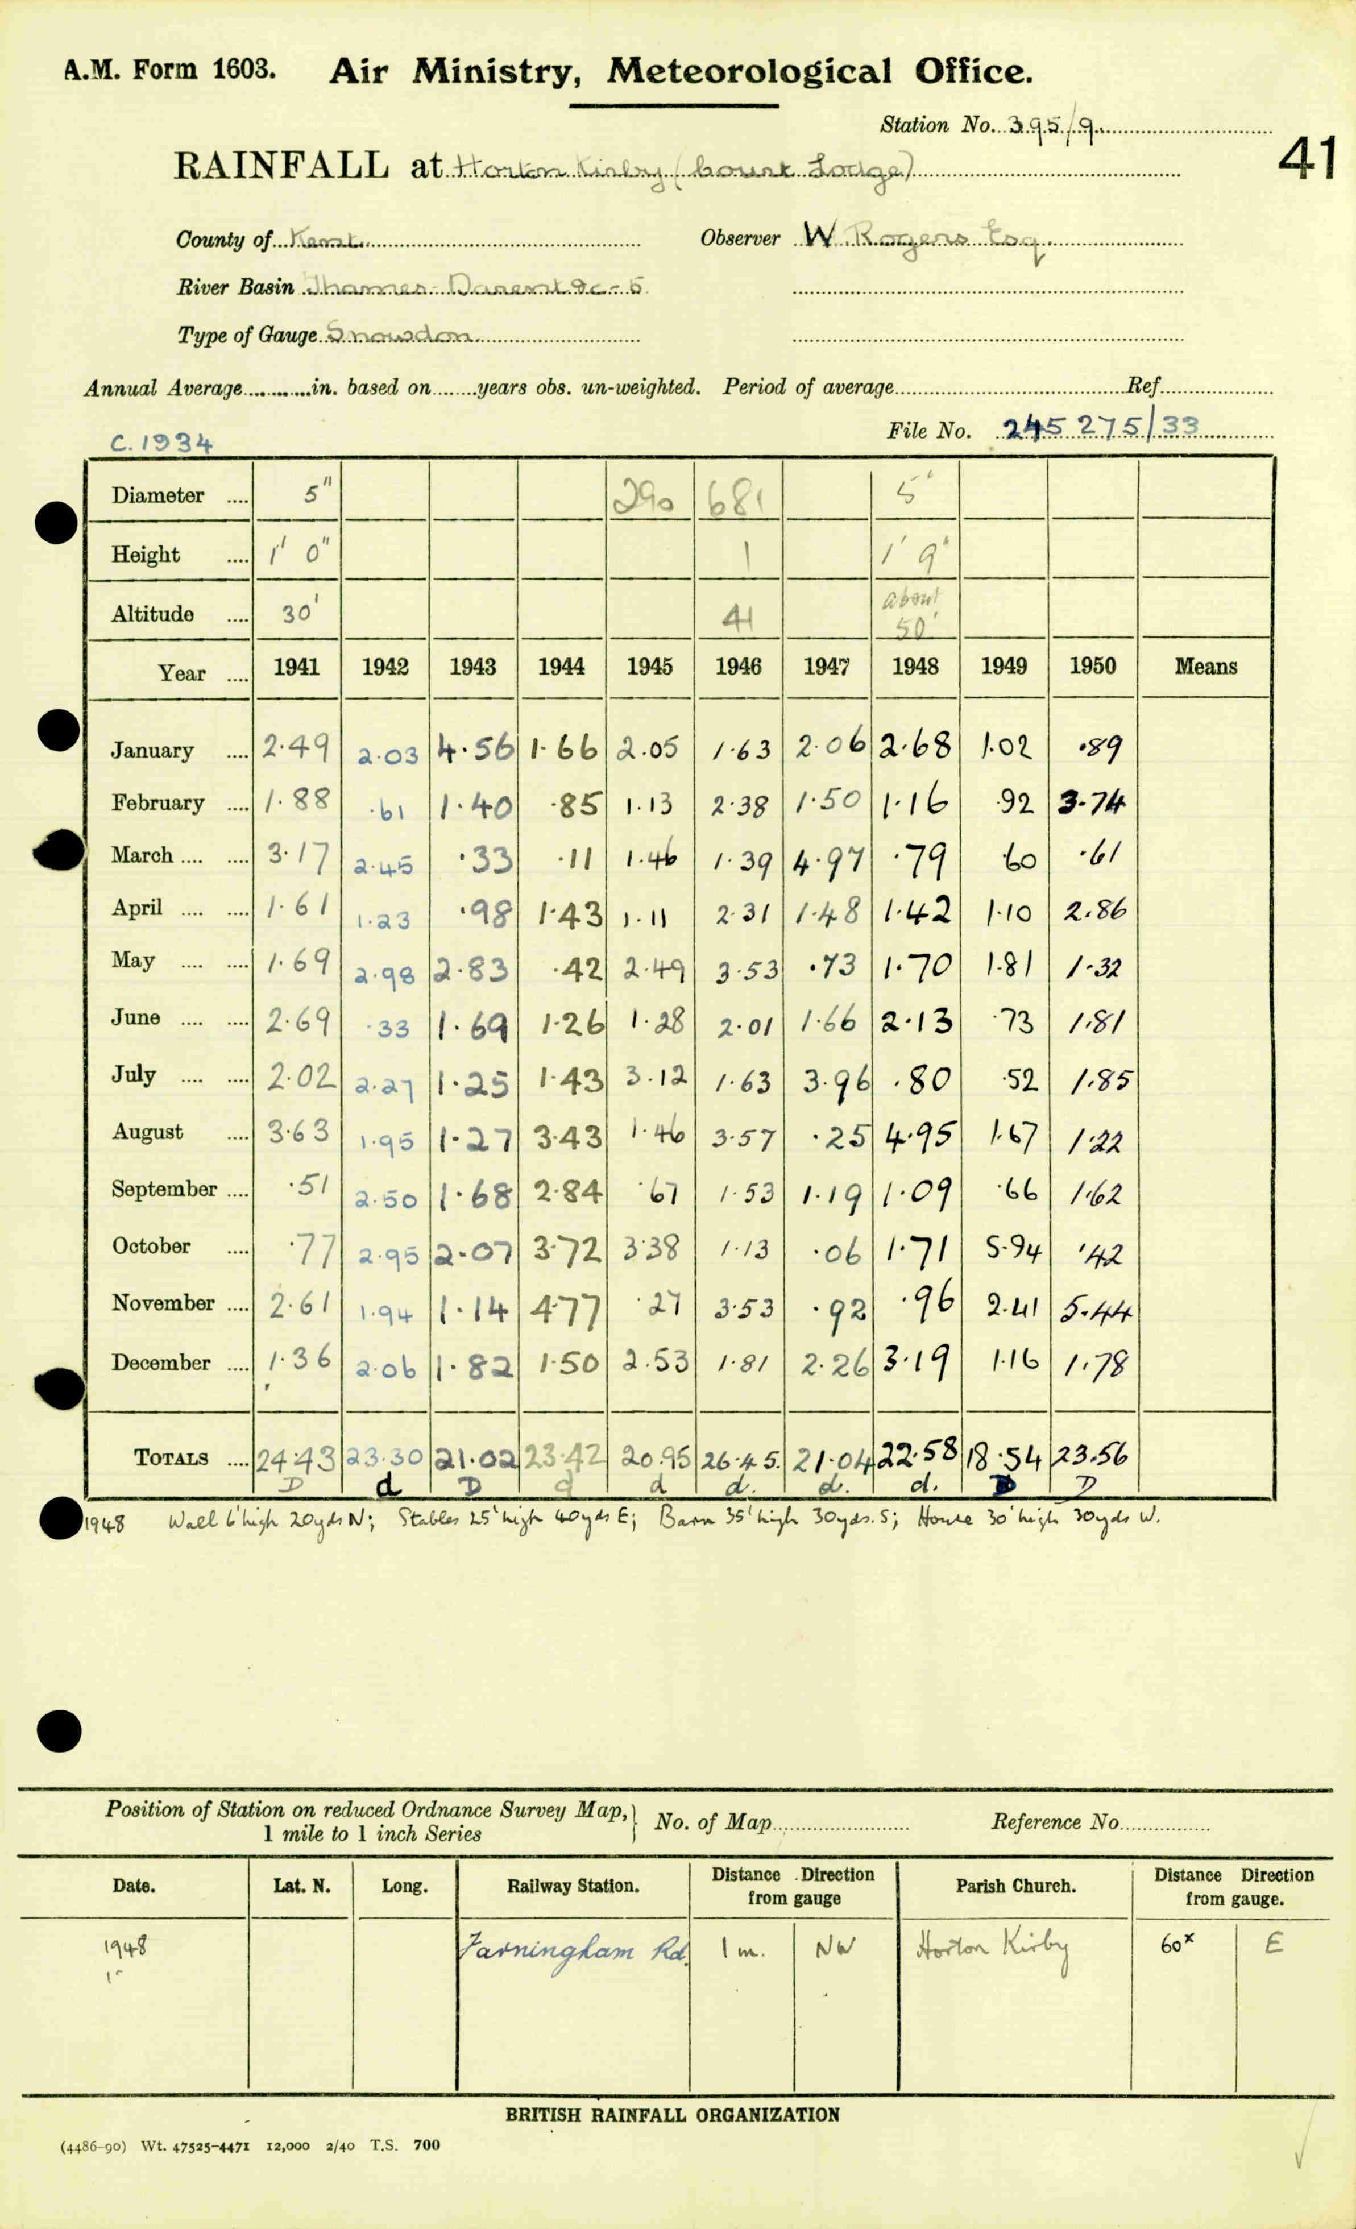 A.M. Form 1603. Air Ministry, Meteorological Office.
Station No. 395/9
41
RAINFALL at Horton Kirby (Court Lodge)
County of Kent Observer W. Rogers Esq.
River Basin Thames - Darent &c - 5
Type of Gauge Snowdon
Annual Average..........in. based on.......years obs. un-weighted. Period of average..........Ref..........
File No. 245275/33
C. 1934
Diameter .... 5" 290 681 5"
Height .... 1' 0" 1 1' 9"
Altitude .... 30' 41 about 50'
Year .... 1941 1942 1943 1944 1945 1946 1947 1948 1949 1950 Means
January .... 2.49 2.03 4.56 1.66 2.05 1.63 2.06 2.68 1.02 .89
February .... 1.88 .61 1.40 .85 1.13 2.38 1.50 1.16 .92 3.74
March .... .... 3.17 2.45 .33 .11 1.46 1.39 4.97 .79 .60 .61
April .... .... 1.61 1.23 .98 1.43 1.11 2.31 1.48 1.42 1.10 2.86
May .... .... 1.69 2.98 2.83 .42 2.49 3.53 .73 1.70 1.81 1.32
June .... .... 2.69 .33 1.69 1.26 1.28 2.01 1.66 2.13 .73 1.81
July .... .... 2.02 2.27 1.25 1.43 3.12 1.63 3.96 .80 .52 1.85
August .... 3.63 1.95 1.27 3.43 1.46 3.57 .25 4.95 1.67 1.22
September .... .51 2.50 1.68 2.84 .67 1.53 1.19 1.09 .66 1.62
October .... .77 2.95 2.07 3.72 3.38 1.13 .06 1.71 5.94 .42
November .... 2.61 1.94 1.14 4.77 .27 3.53 .92 .96 2.41 5.44
December .... 1.36 2.06 1.82 1.50 2.53 1.81 2.26 3.19 1.16 1.78
TOTALS .... 24.43 23.30 21.02 23.42 20.95 26.45. 21.04 22.58 18.54 23.56
D d D d d d. d. d. D D
1948 Wall 6' high 20yds N; Stables 25' high 40yds E; Barn 35' high 30yds. S; House 30' high 30yds W.
Position of Station on reduced Ordnance Survey Map, 1 mile to 1 inch Series } No. of Map.......... Reference No..........
Date. Lat. N. Long. Railway Station. Distance Direction from gauge Parish Church. Distance Direction from gauge.
1948 Farningham Rd. 1 m. NW Horton Kirby 60x E
BRITISH RAINFALL ORGANIZATION
(4486-90) Wt. 47525-4471 12,000 2/40 T.S. 700